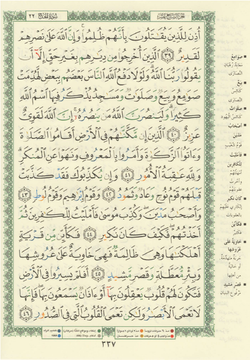 الجزء السابع عشر
سورة الحج ٢٢
أُذِنَ لِلَّذِينَ يُقَٰتَلُونَ بِأَنَّهُمْ ظُلِمُوا۟ وَإِنَّ ٱللَّهَ عَلَىٰ نَصْرِهِمْ
لَقَدِيرٌ ٣٩ ٱلَّذِينَ أُخْرِجُوا۟ مِن دِيَٰرِهِم بِغَيْرِ حَقٍّ إِلَّآ أَن
يَقُولُوا۟ رَبُّنَا ٱللَّهُ وَلَوْلَا دَفْعُ ٱللَّهِ ٱلنَّاسَ بَعْضَهُم بِبَعْضٍ لَّهُدِّمَتْ
صَوَٰمِعُ وَبِيَعٌ وَصَلَوَٰتٌ وَمَسَٰجِدُ يُذْكَرُ فِيهَا ٱسْمُ ٱللَّهِ
كَثِيرًا وَلَيَنصُرَنَّ ٱللَّهُ مَن يَنصُرُهُۥٓ إِنَّ ٱللَّهَ لَقَوِىٌّ
عَزِيزٌ ٤٠ ٱلَّذِينَ إِن مَّكَّنَّٰهُمْ فِى ٱلْأَرْضِ أَقَامُوا۟ ٱلصَّلَوٰةَ
وَءَاتَوُا۟ ٱلزَّكَوٰةَ وَأَمَرُوا۟ بِٱلْمَعْرُوفِ وَنَهَوْا۟ عَنِ ٱلْمُنكَرِ
وَلِلَّهِ عَٰقِبَةُ ٱلْأُمُورِ ٤١ وَإِن يُكَذِّبُوكَ فَقَدْ كَذَّبَتْ
قَبْلَهُمْ قَوْمُ نُوحٍ وَعَادٌ وَثَمُودُ ٤٢ وَقَوْمُ إِبْرَٰهِيمَ وَقَوْمُ لُوطٍ ٤٣
وَأَصْحَٰبُ مَدْيَنَ وَكُذِّبَ مُوسَىٰ فَأَمْلَيْتُ لِلْكَٰفِرِينَ ثُمَّ
أَخَذْتُهُمْ فَكَيْفَ كَانَ نَكِيرِ ٤٤ فَكَأَيِّن مِّن قَرْيَةٍ
أَهْلَكْنَٰهَا وَهِىَ ظَالِمَةٌ فَهِىَ خَاوِيَةٌ عَلَىٰ عُرُوشِهَا
وَبِئْرٍ مُّعَطَّلَةٍ وَقَصْرٍ مَّشِيدٍ ٤٥ أَفَلَمْ يَسِيرُوا۟ فِى ٱلْأَرْضِ
فَتَكُونَ لَهُمْ قُلُوبٌ يَعْقِلُونَ بِهَآ أَوْ ءَاذَانٌ يَسْمَعُونَ بِهَا فَإِنَّهَا
لَا تَعْمَى ٱلْأَبْصَٰرُ وَلَٰكِن تَعْمَى ٱلْقُلُوبُ ٱلَّتِى فِى ٱلصُّدُورِ ٤٦
٣٣٧